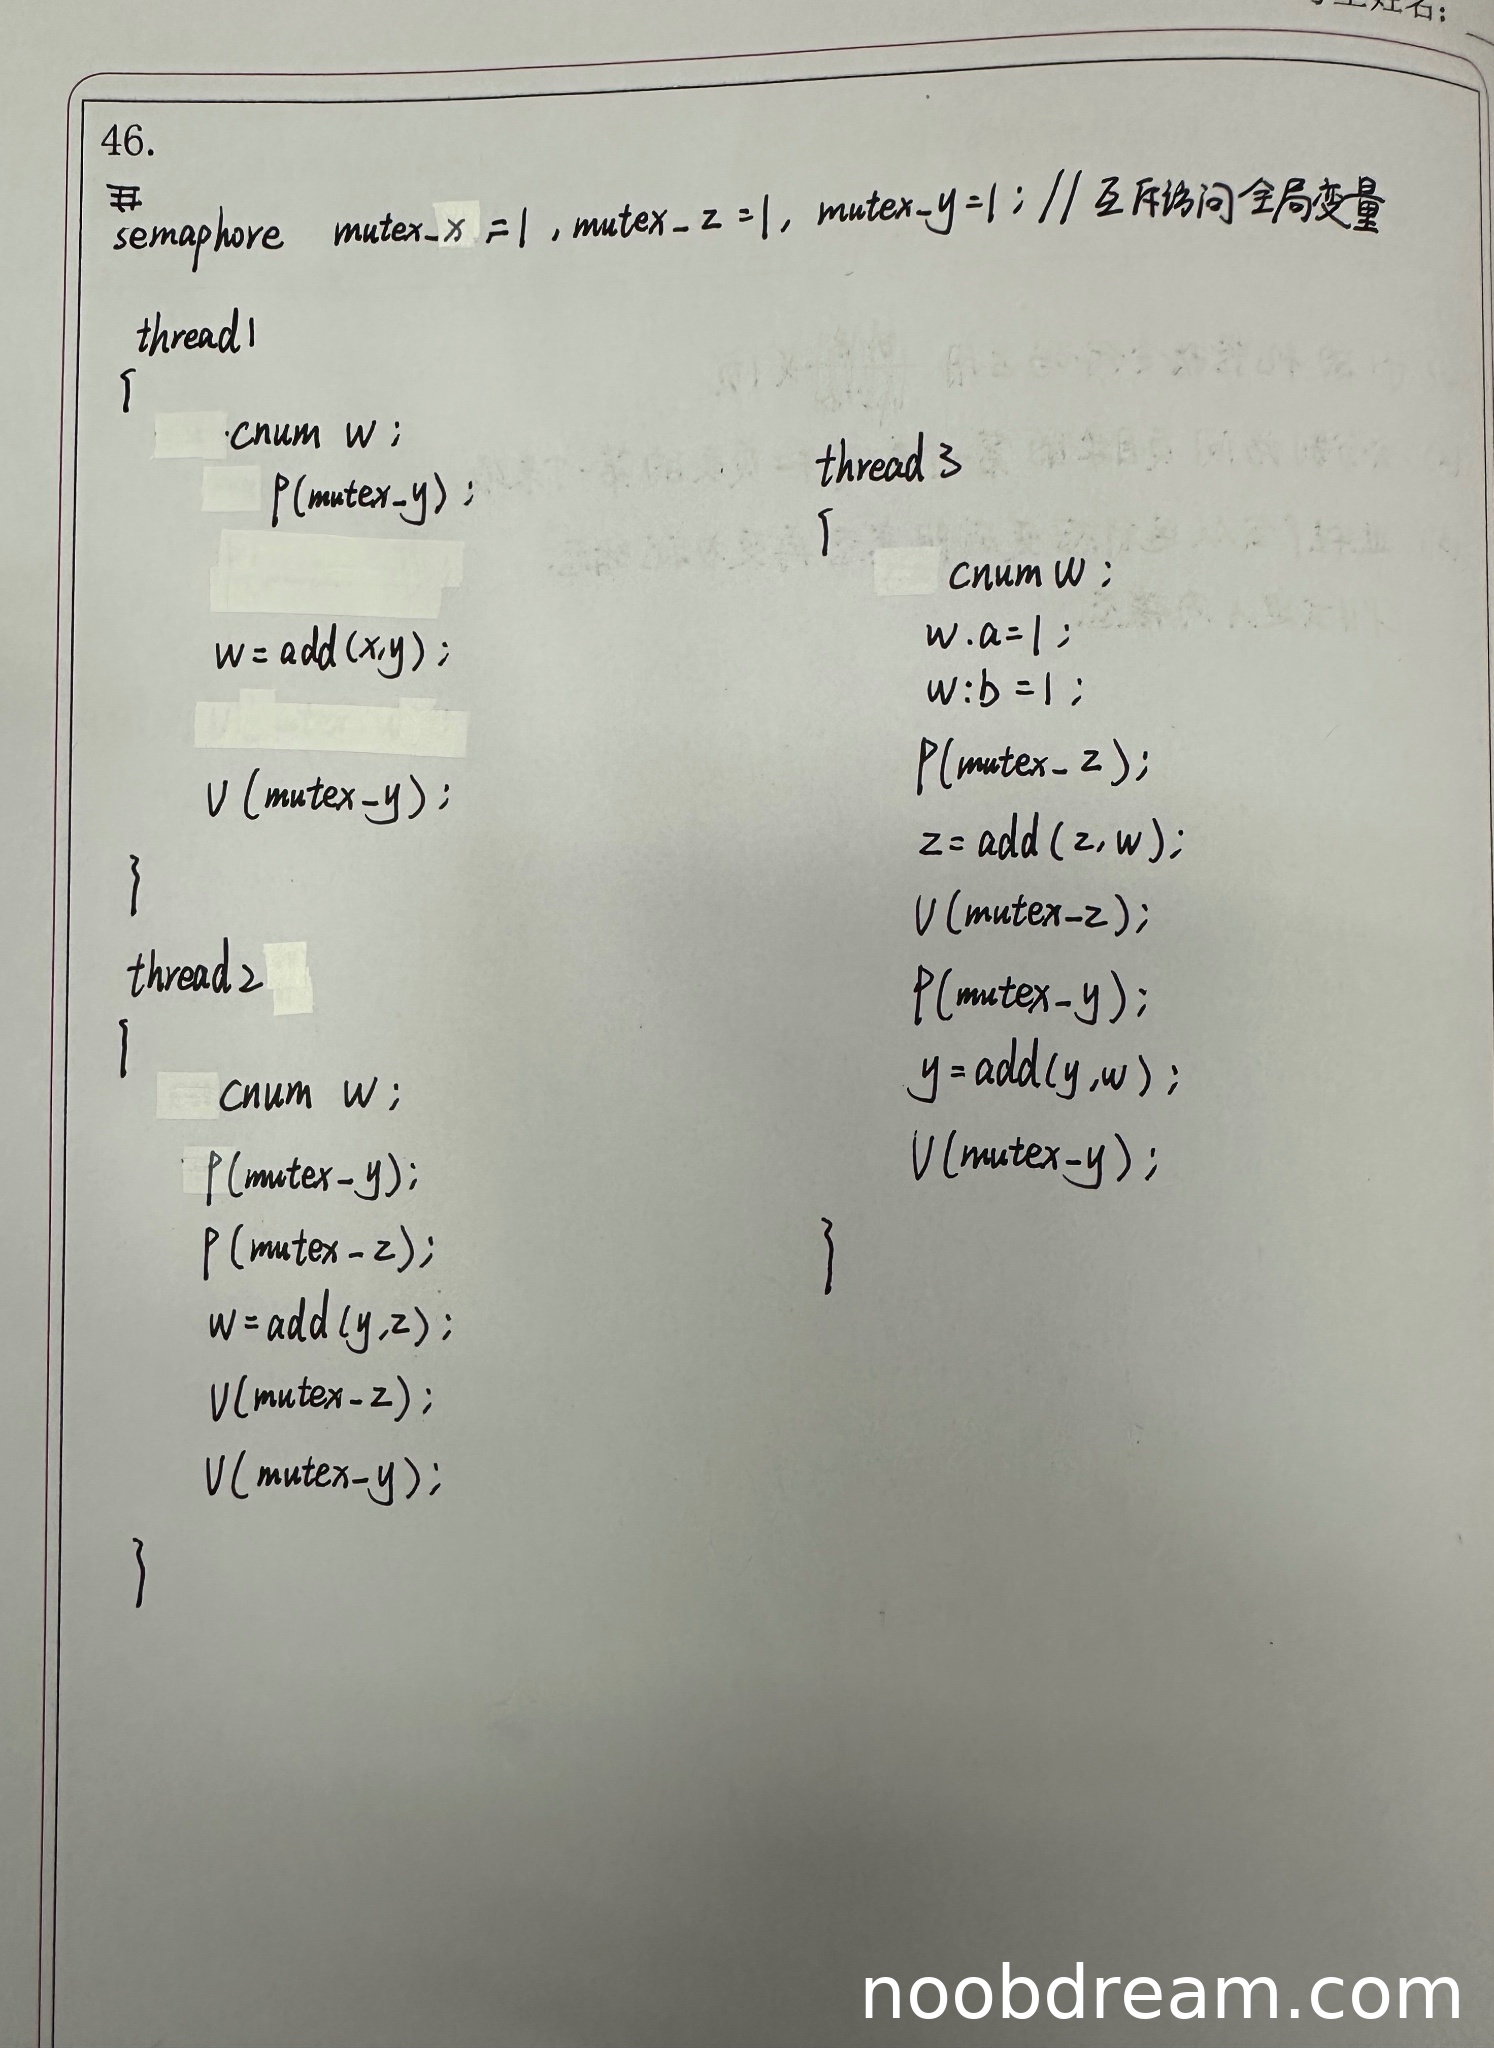 姓名:
46.
semaphore mutex_x = 1, mutex_z = 1, mutex_y = 1; // 互斥访问全局变量
thread1
{
cnum w;
P(mutex_y);
w = add(x,y);
V(mutex_y);
}
thread2
{
cnum w;
P(mutex_y);
P(mutex_z);
w = add(y,z);
V(mutex_z);
V(mutex_y);
}
thread3
{
cnum w;
w.a=1;
w:b=1;
P(mutex_z);
z = add(z,w);
V(mutex_z);
P(mutex_y);
y = add(y,w);
V(mutex_y);
}
noobdream.com